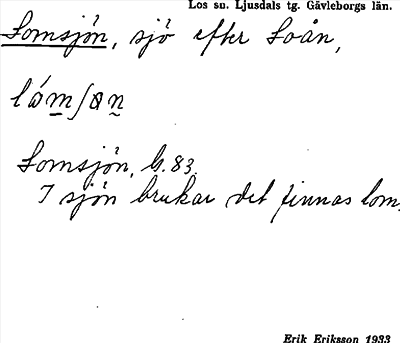 Los sn. Ljusdals tg. Gävleborgs län.
Lomsjön, sjö efter Loån,
Lomsjön, G. 83.
I sjön brukar det finnas lom.
Erik Eriksson 1933